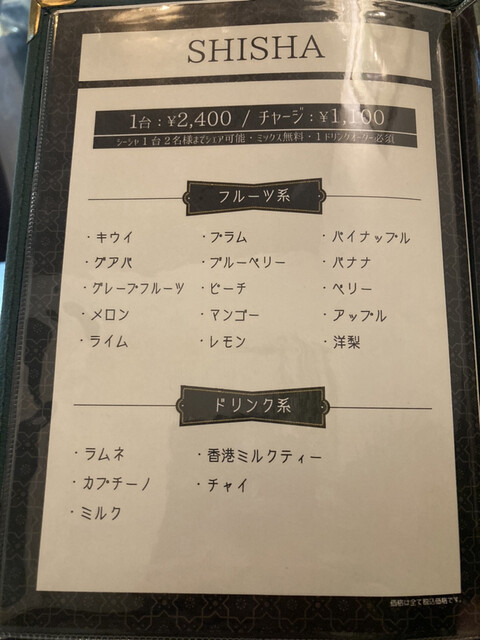 SHISHA
1台：¥2,400 / チャージ：¥1,100
シーシャ1台2名様までシェア可能・ミックス無料・1ドリンクオーダー必須
フルーツ系
・キウイ ・プラム ・パイナップル
・グアバ ・ブルーベリー ・バナナ
・グレープフルーツ ・ピーチ ・ベリー
・メロン ・マンゴー ・アップル
・ライム ・レモン ・洋梨
ドリンク系
・ラムネ ・香港ミルクティー
・カプチーノ ・チャイ
・ミルク
価格は全て税込価格です。